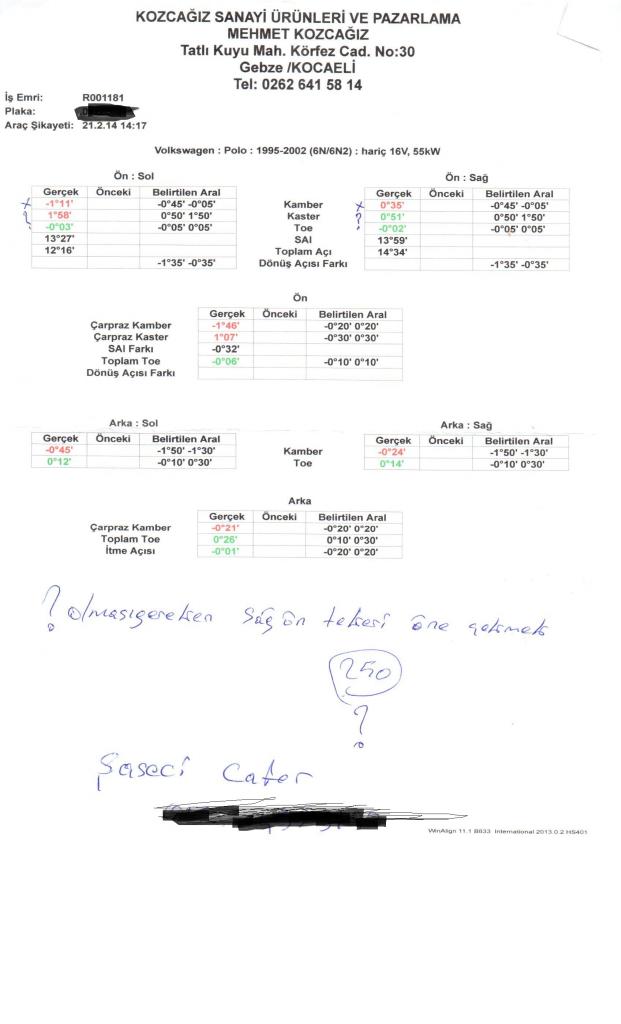 KOZCAĞIZ SANAYİ ÜRÜNLERİ VE PAZARLAMA
MEHMET KOZCAĞIZ
Tatlı Kuyu Mah. Körfez Cad. No:30
Gebze /KOCAELİ
Tel: 0262 641 58 14
İş Emri: R001181
Plaka:
Araç Şikayeti: 21.2.14 14:17
Volkswagen : Polo : 1995-2002 (6N/6N2) : hariç 16V, 55kW
Ön : Sol Ön : Sağ
Gerçek Önceki Belirtilen Aral Gerçek Önceki Belirtilen Aral
x -1°11' -0°45' -0°05' Kamber x 0°35' -0°45' -0°05'
? 1°58' 0°50' 1°50' Kaster ? 0°51' 0°50' 1°50'
-0°03' -0°05' 0°05' Toe -0°02' -0°05' 0°05'
13°27' SAI 13°59'
12°16' Toplam Açı 14°34'
-1°35' -0°35' Dönüş Açısı Farkı -1°35' -0°35'
Ön
Gerçek Önceki Belirtilen Aral
Çarpraz Kamber -1°46' -0°20' 0°20'
Çarpraz Kaster 1°07' -0°30' 0°30'
SAI Farkı -0°32'
Toplam Toe -0°06' -0°10' 0°10'
Dönüş Açısı Farkı
Arka : Sol Arka : Sağ
Gerçek Önceki Belirtilen Aral Gerçek Önceki Belirtilen Aral
-0°45' -1°50' -1°30' Kamber -0°24' -1°50' -1°30'
0°12' -0°10' 0°30' Toe 0°14' -0°10' 0°30'
Arka
Gerçek Önceki Belirtilen Aral
Çarpraz Kamber -0°21' -0°20' 0°20'
Toplam Toe 0°26' 0°10' 0°30'
İtme Açısı -0°01' -0°20' 0°20'
? olması gereken sağ ön tekeri öne çekmek
250
?
Şaseci Cafer
WinAlign 11.1 B833 International 2013.0.2 HS401